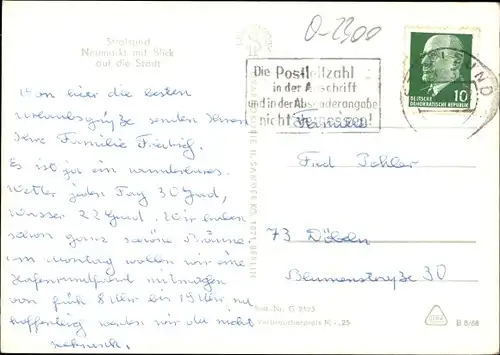 Stralsund
Neumarkt mit Blick
auf die Stadt
0-2300
Die Postleitzahl
in der Anschrift
und in der Absenderangabe
nicht vergessen!
DEUTSCHE
DEMOKRATISCHE REPUBLIK
10
Von hier die besten
Urlaubsgrüße senden Ihnen
Ihre Familie
Es ist ja ein wunderbares
Wetter jeden Tag 30 Grad,
Wasser 22 Grad. Wir haben
schon ganz schöne Bräune
am Montag wollen wir eine
Hafenrundfahrt mitmachen
von früh 8 Uhr bis 19 Uhr, na
hoffentlich werden wir da nicht
seekrank.
Familie
Fred
73 Döbeln
Blumenstraße 30
Best.-Nr. G
Verbraucherpreis M -,25
B 8/68